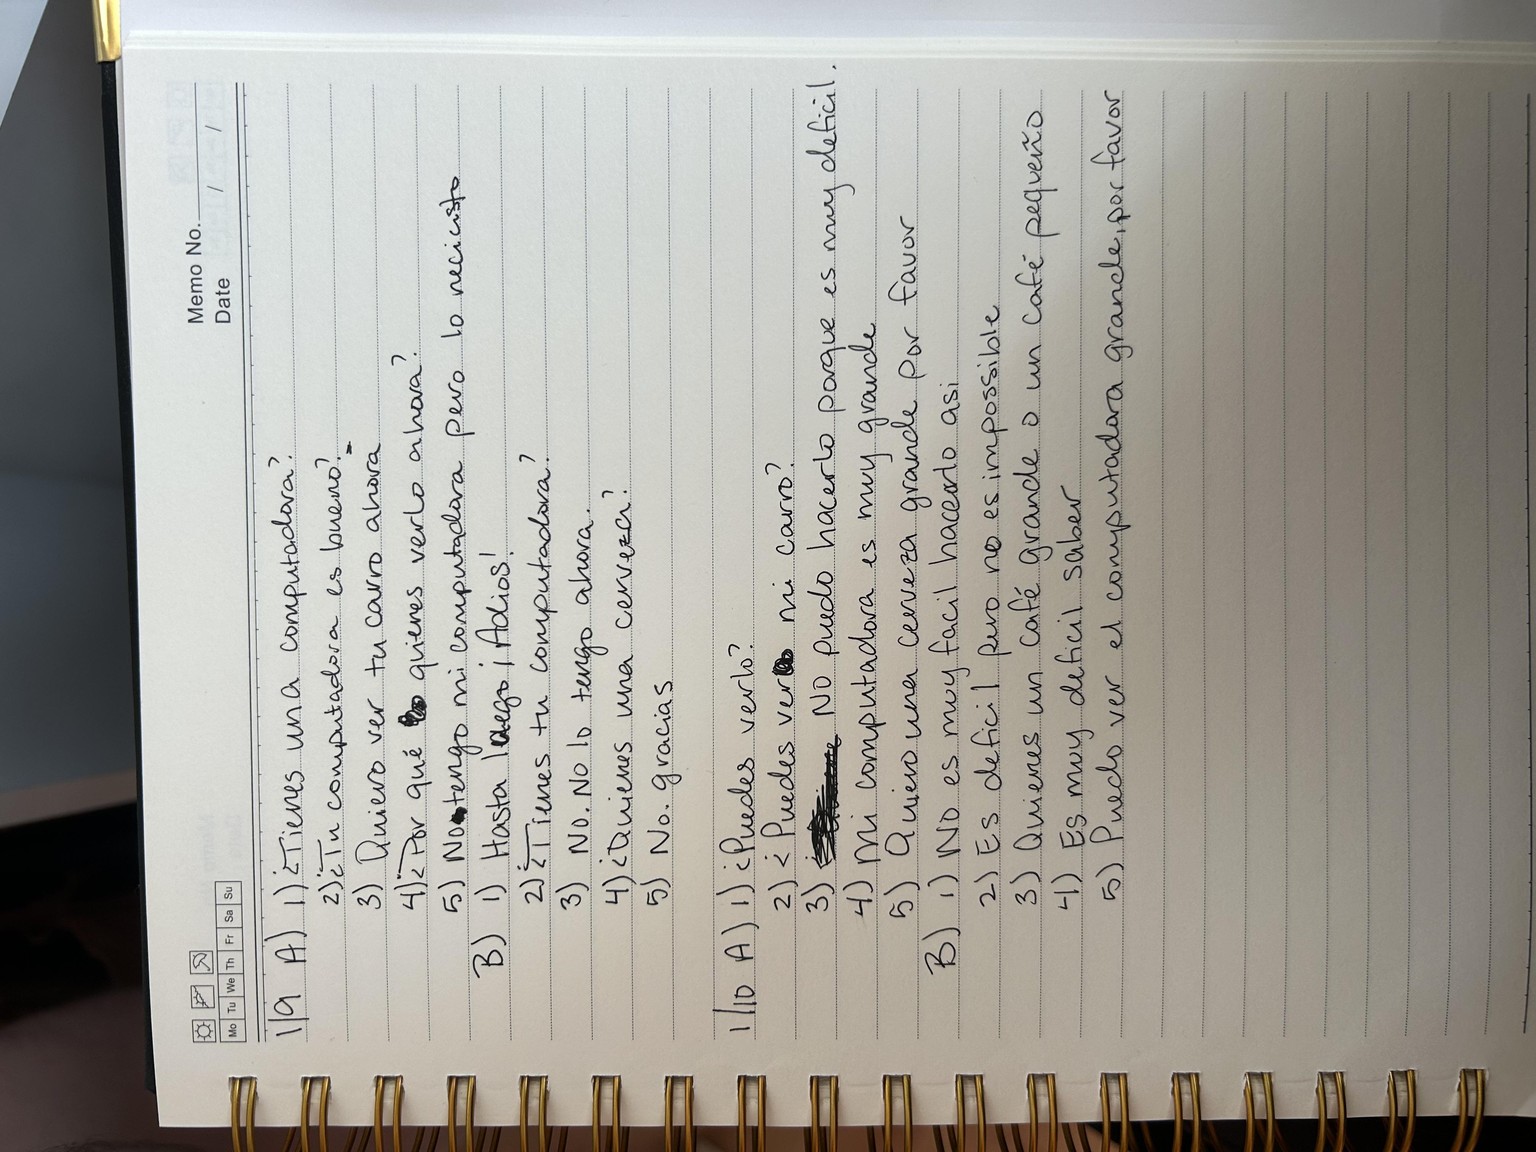 Memo No. / /
Date
Mo Tu We Th Fr Sa Su
1/9 A) 1) ¿Tienes una computadora?
2) ¿Tu computadora es bueno?
3) Quiero ver tu carro ahora
4) ¿Por qué quieres verlo ahora?
5) No tengo mi computadora pero lo necicisto
B) 1) Hasta luego ¡Adios!
2) ¿Tienes tu computadora?
3) No. No lo tengo ahora.
4) ¿Quieres una cerveza?
5) No. gracias
1/10 A) 1) ¿Puedes verlo?
2) ¿Puedes ver mi carro?
3) No puedo hacerlo porque es muy deficil.
4) Mi computadora es muy grande
5) Quiero una cerveza grande por favor
B) 1) No es muy facil hacerlo asi
2) Es deficil pero no es impossible
3) Quieres un café grande o un café pequeño
4) Es muy deficil saber
5) Puedo ver el computadora grande, por favor